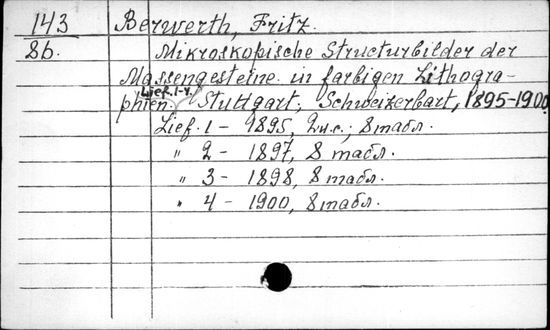 143 Berwerth, Fritz.
8b. Mikroskopische Structurbilder der
Massengesteine in farbigen Lithogra-
phien. Lief. 1-4. Stuttgart, Schweizerbart, 1895-1900
Lief. 1 - 1895, 2 н.с.; 8 табл.
" 2 - 1897, 8 табл.
" 3 - 1898, 8 табл.
" 4 - 1900, 8 табл.